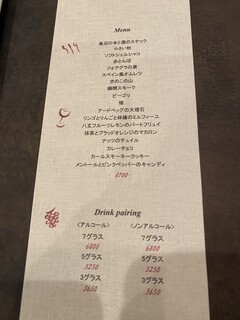 Menu
亀造の米と鶏のスナック
小さい秋
ソフトシェルシャコ
赤とんぼ
フォアグラの栗
スペイン風オムレツ
きのこの山
瞬間スモーク
ビーゴリ
猪
アードベッグの大理石
リンゴとりんごと林檎のミルフィーユ
八丈フルーツレモンのパートフリュイ
抹茶とブラッドオレンジのマカロン
ナッツのチュイル
カレーチョコ
カールスモーキークッキー
メントールとピンクペッパーのキャンディ
8700
Drink pairing
<アルコール> <ノンアルコール>
7グラス 7グラス
6800 6800
5グラス 5グラス
5250 5250
3グラス 3グラス
3650 3650